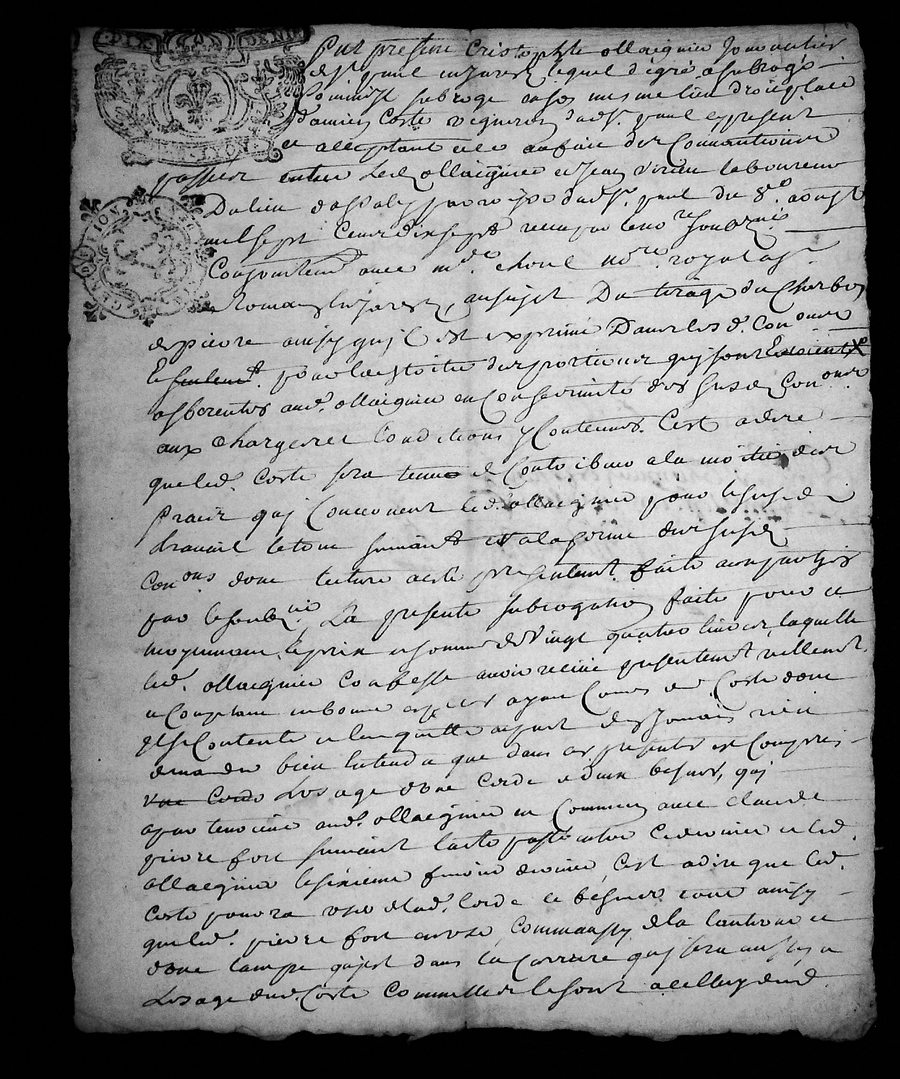 DIX DENI
GN. LYON
Fut present Cristophle ollaignier Jouvantier
de St paul en Jarest lequel de gré a subrogé
Comm'Il subroge en son mesme lieu droit et place
damien Coste vigneron dud St paul cy present
et acceptant et ce au fait des Conventions
passées entre led ollaignier et Jean virieu laboureur
Du lieu d' parroisse dud St paul du 8e aoust
mil sept Cent dix sept recu par le no.re soubz.né
Conjointemt avec me chorel no.re royal a St
Romain en Jarest, au sujet Du tirage du Charbon
de pierre ainsy qu'il est exprimé Dans lesd. Con.ons
et seulemt. pour la moitié des portions qui sont
afferentes aud. ollaignier en Conformité des susd. Con.ons
aux Charges et Conditions y Contenues. C'est a dire
que led. Coste sera tenu de Contribuer a la moitié des
fraix quj Concernent led. ollaignier pour le susd.
travail le tout suivant et a la forme des susd.
Con.ons dont lecture a esté presentemt. faite aux partyes
par le soubz.né La presente subrogation faite pour et
moyennant le prix et somme de Vingt quatre livres, laquelle
led. ollaignier Confesse avoir receüe presentemt reellement
et Comptant en bonnes especes ayant Cours dud. Coste dont
Il se Contente et l'en quitte avec pact de Jamais rien
demander bien Entendu que dans ces presentes est Compris
une Corde L'usage d'une Corde et deux bennes, quj
apartiennent aud. ollaignier en Commun avec claude
pierre fort suivant l'acte passé entre Ce dernier et led.
ollaignier le sixieme fevrier dernier, c'est a dire que led.
Coste pourra user de lad. Corde et bennes tout ainsy
que led. pierre fort en use, Comm'aussy de la lanterne et
d'une lampe qui est dans la Carriere quj sera aussy a
L'usage dud Coste Comm'elle le sont a celluy dud